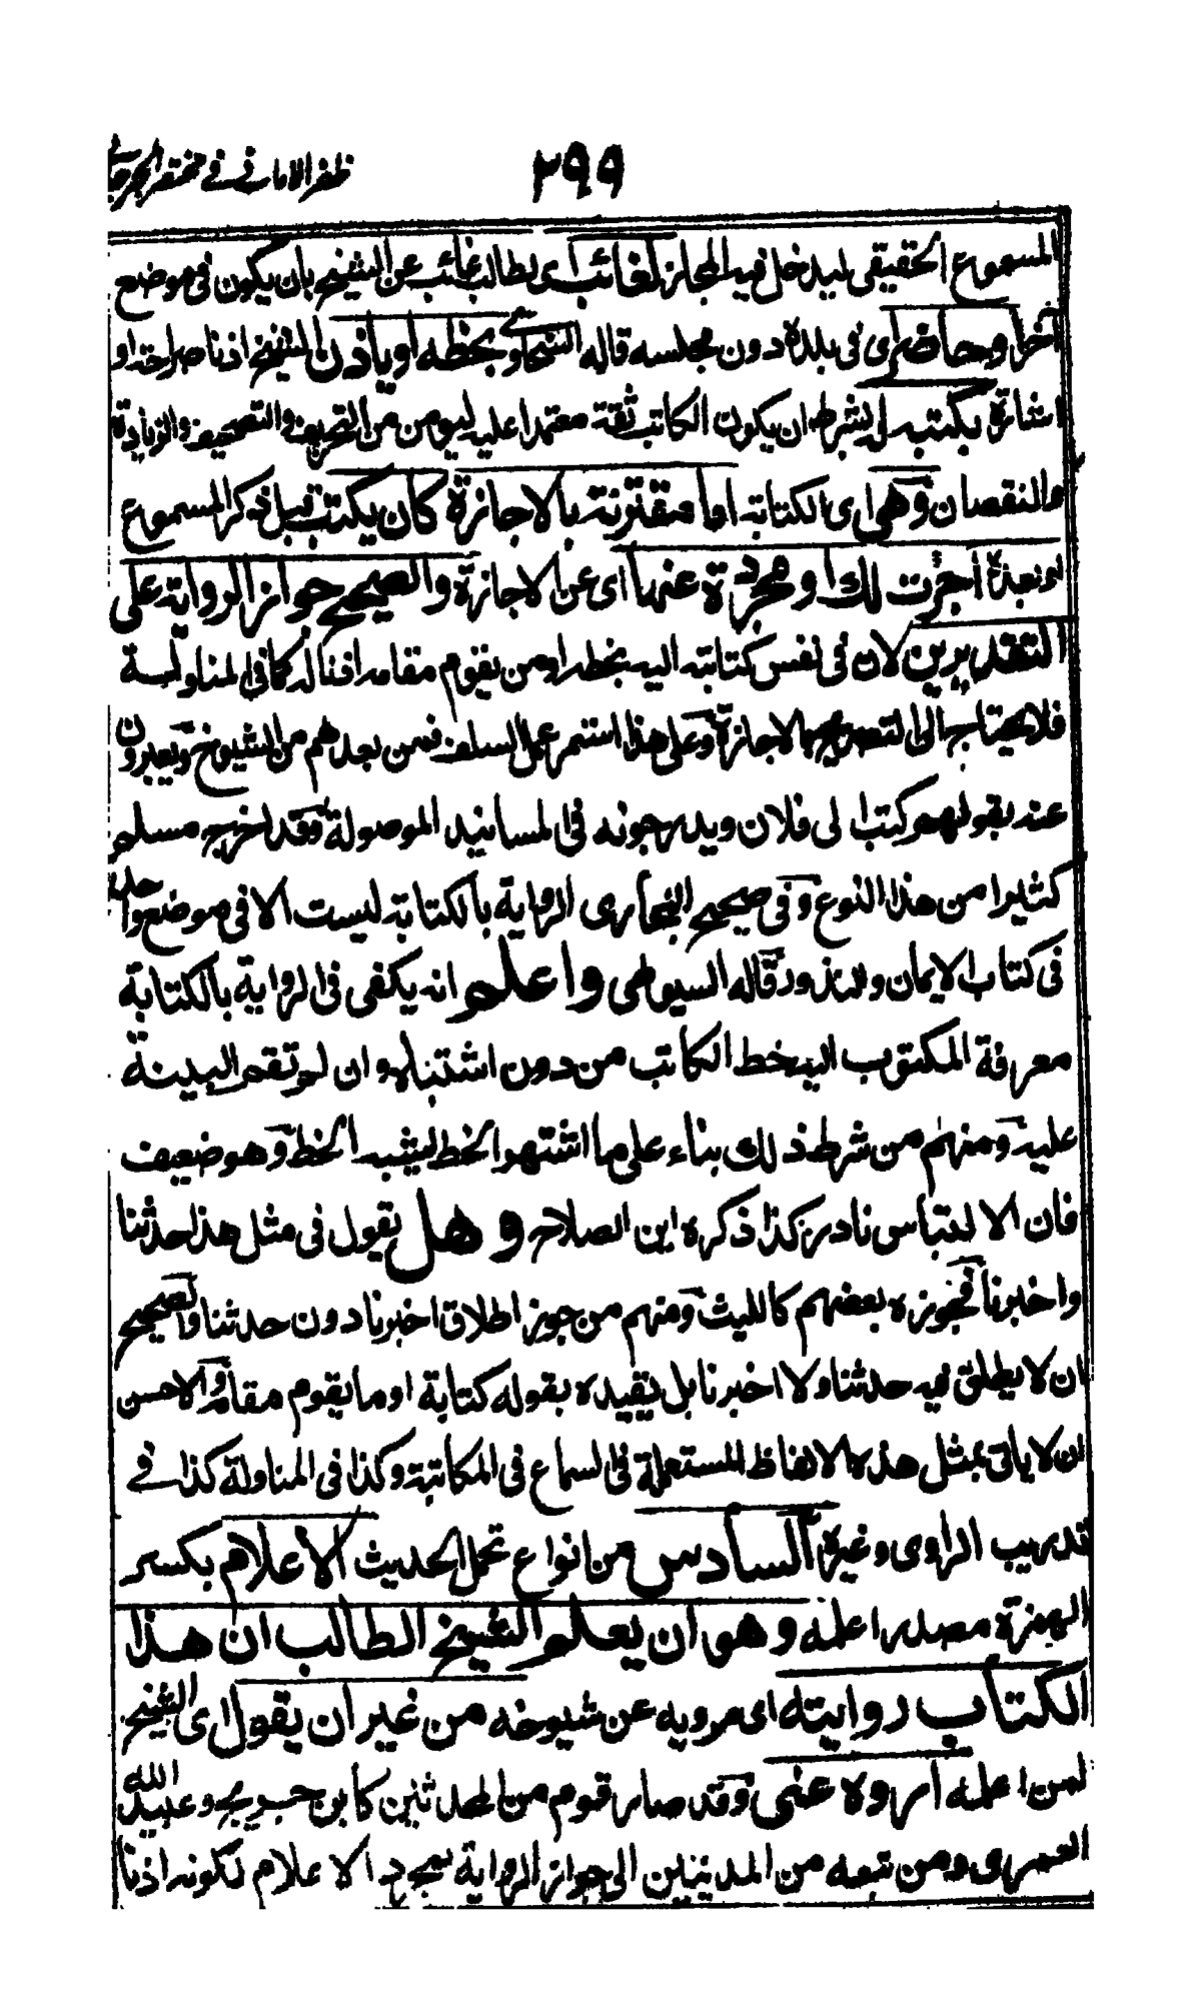 ٢٩٩ ظفر الامانی فی مختصر الجرجانی
المسموع الحقیقی لیدخل فیه المجاز لغائب ای لطالب غائب عن الشیخ بان یکون فی موضع
آخر او حاضر ای فی بلده دون مجلسه قاله السخاوی بخطه او یاذن الشیخ اذنا صراحة او
اشارة بکتبه له بشرط ان یکون الکاتب ثقة معتمدا علیه لیومن من التحریف والتصحیف والزیادة
والنقصان وهی ای الکتابة اما مقترنة بالاجازة کان یکتب قبل ذکر المسموع
او بعده اجزت لک او مجردة عنها ای عن الاجازة والصحیح جواز الروایة علی
التقدیرین لان فی نفس کتابته الیه بخطه او من یقوم مقامه اذنا له کما فی المناولة
فلا یحتاج الی التصریح بالاجازة وعلی هذا استمر عمل السلف فمن بعدهم من الشیوخ ویعبرون
عنه بقولهم کتب الی فلان ویدرجونه فی المسانید الموصولة وقد اخرج مسلم
کثیرا من هذا النوع وفی صحیح البخاری الروایة بالکتابة لیست الا فی موضع واحد
فی کتاب الایمان والنذور قاله السیوطی واعلم انه یکفی فی الروایة بالکتابة
معرفة المکتوب الیه خط الکاتب من دون اشتباه وان لم تقم البینة
علیه ومنهم من شرط ذلک بناء علی ما اشتهر الخط یشبه الخط وهو ضعیف
فان الالتباس نادر کذا ذکره ابن الصلاح وهل یقول فی مثل هذا حدثنا
واخبرنا فجوزه بعضهم کاللیث ومنهم من جوز اطلاق اخبرنا دون حدثنا والصحیح
ان لا یطلق فیه حدثنا ولا اخبرنا بل یقیده بقوله کتابة او ما یقوم مقامه والاحسن
ان لا یاتی بمثل هذه الالفاظ المستعملة فی السماع فی المکاتبة وکذا فی المناولة کذا فی
تدریب الراوی وغیره السادس من انواع تحمل الحدیث الاعلام بکسر
الهمزة مصدر اعلمه وهو ان یعلم الشیخ الطالب ان هذا
الکتاب روایته ای مرویه عن شیوخه من غیر ان یقول ای الشیخ
لمن اعلمه اروه عنی وقد صار قوم من المحدثین کابن جریج وعبید الله
العمری ومن تبعه من المدنیین الی جواز الروایة بمجرد الاعلام لکونه اذنا